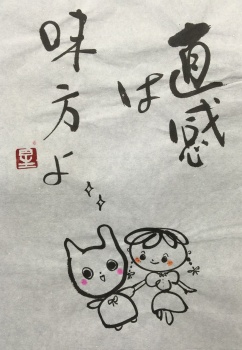 直感は
味方よ